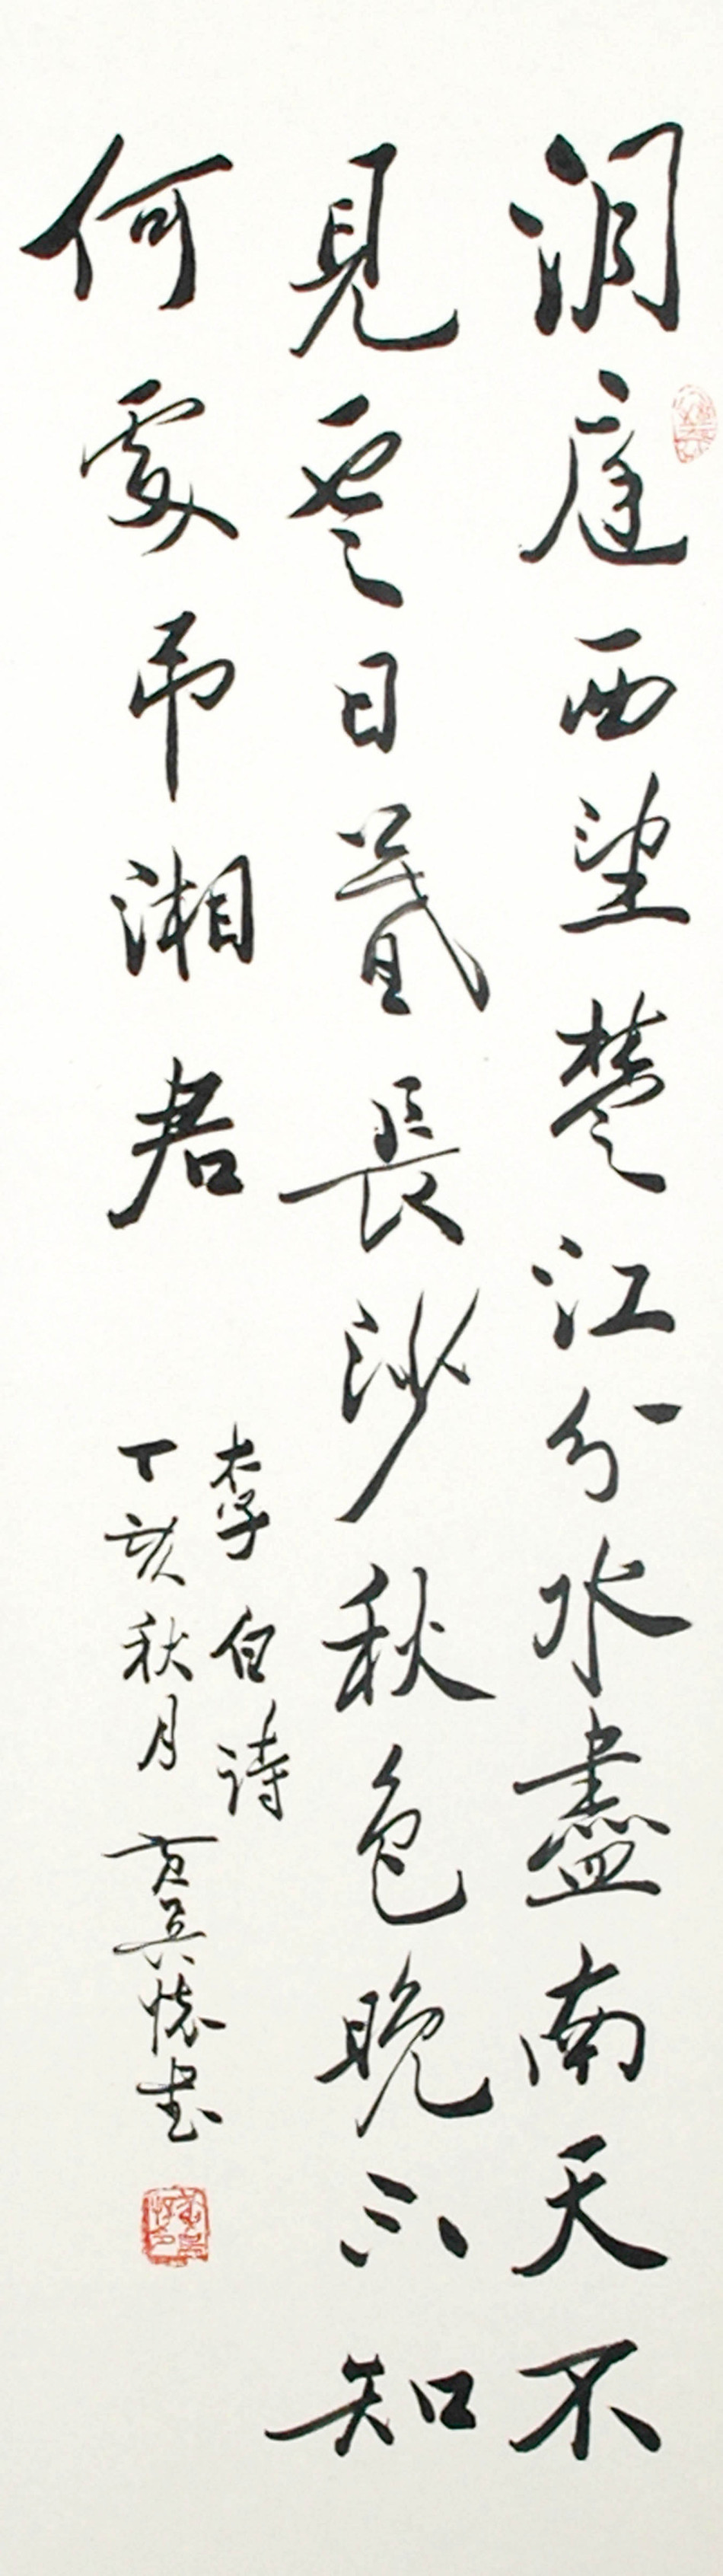 洞庭西望楚江分水盡南天不
見雲日暮長沙秋色晚不知
何處吊湘君
李白詩
丁亥秋月 懷書